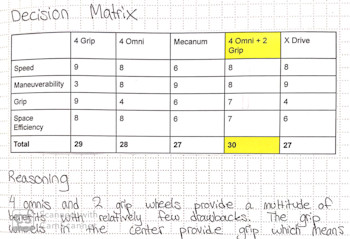 Decision Matrix
4 Grip 4 Omni Mecanum 4 Omni + 2 Grip X Drive
Speed 9 8 6 8 8
Maneuverability 3 8 9 8 9
Grip 9 4 6 7 4
Space Efficiency 8 8 6 7 6
Total 29 28 27 30 27
Reasoning
4 omnis and 2 grip wheels provide a multitude of
benefits with relatively few drawbacks. The grip
wheels in the center provide grip which means